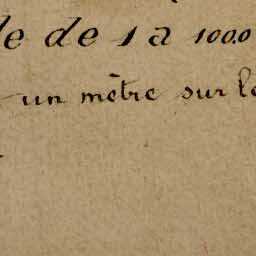 de 1 à 1000
un mètre sur